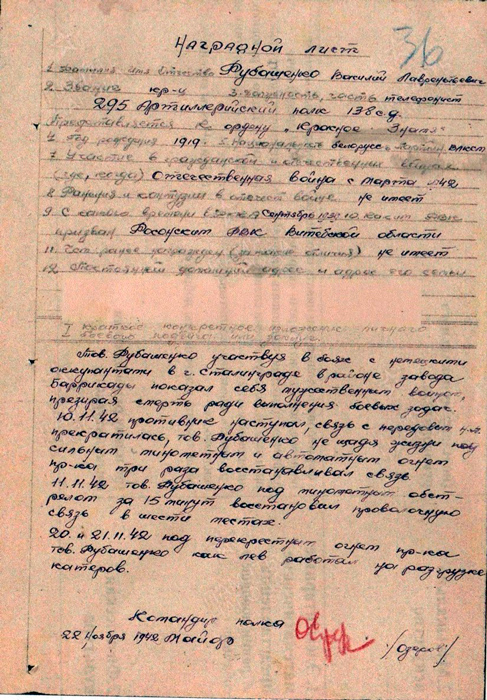 36
НАГРАДНОЙ ЛИСТ
1. Фамилия имя отчество Рубашенко Василий Лаврентьевич
2. Звание кр-ц 3. должность, часть телефонист
295 Артиллерийский полк 138 с.д.
Представляется к ордену "Красное Знамя"
4. Год рождения 1919 5. Национальность белорус 6. Партийн. ВЛКСМ
7. Участие в гражданской и отечественных войнах
(где, когда) Отечественная война с марта 1942
8. Ранения и контузии в отечест войне не имеет
9. С какого времени в РККА Сентябрь 10. каким РВК
призван Расонским РВК Витебской области
11. Чем ранее награжден (за какие отличия) не имеет
12. Постоянный домашний адрес и адрес его семьи
I Краткое конкретное изложение личного
боевого подвига или заслуг.
Тов. Рубашенко участвуя в боях с немецкими
оккупантами в г. Сталинграде в районе завода
Баррикады показал себя мужественным воином,
презирая смерть ради выполнения боевых задач.
10.11.42 противник наступал, связь с передовым н.п.
прекратилась, тов. Рубашенко не щадя жизни под
сильным минометным и автоматным огнем
пр-ка три раза восстанавливал связь
11.11.42 тов. Рубашенко под минометным обст-
релом за 15 минут восстановил проволочную
связь в шести местах.
20 и 21.11.42 под перекрестным огнем пр-ка
тов. Рубашенко как лев работал на разгрузке
катеров.
Командир полка
22 Ноября 1942 Майор /Озеров/